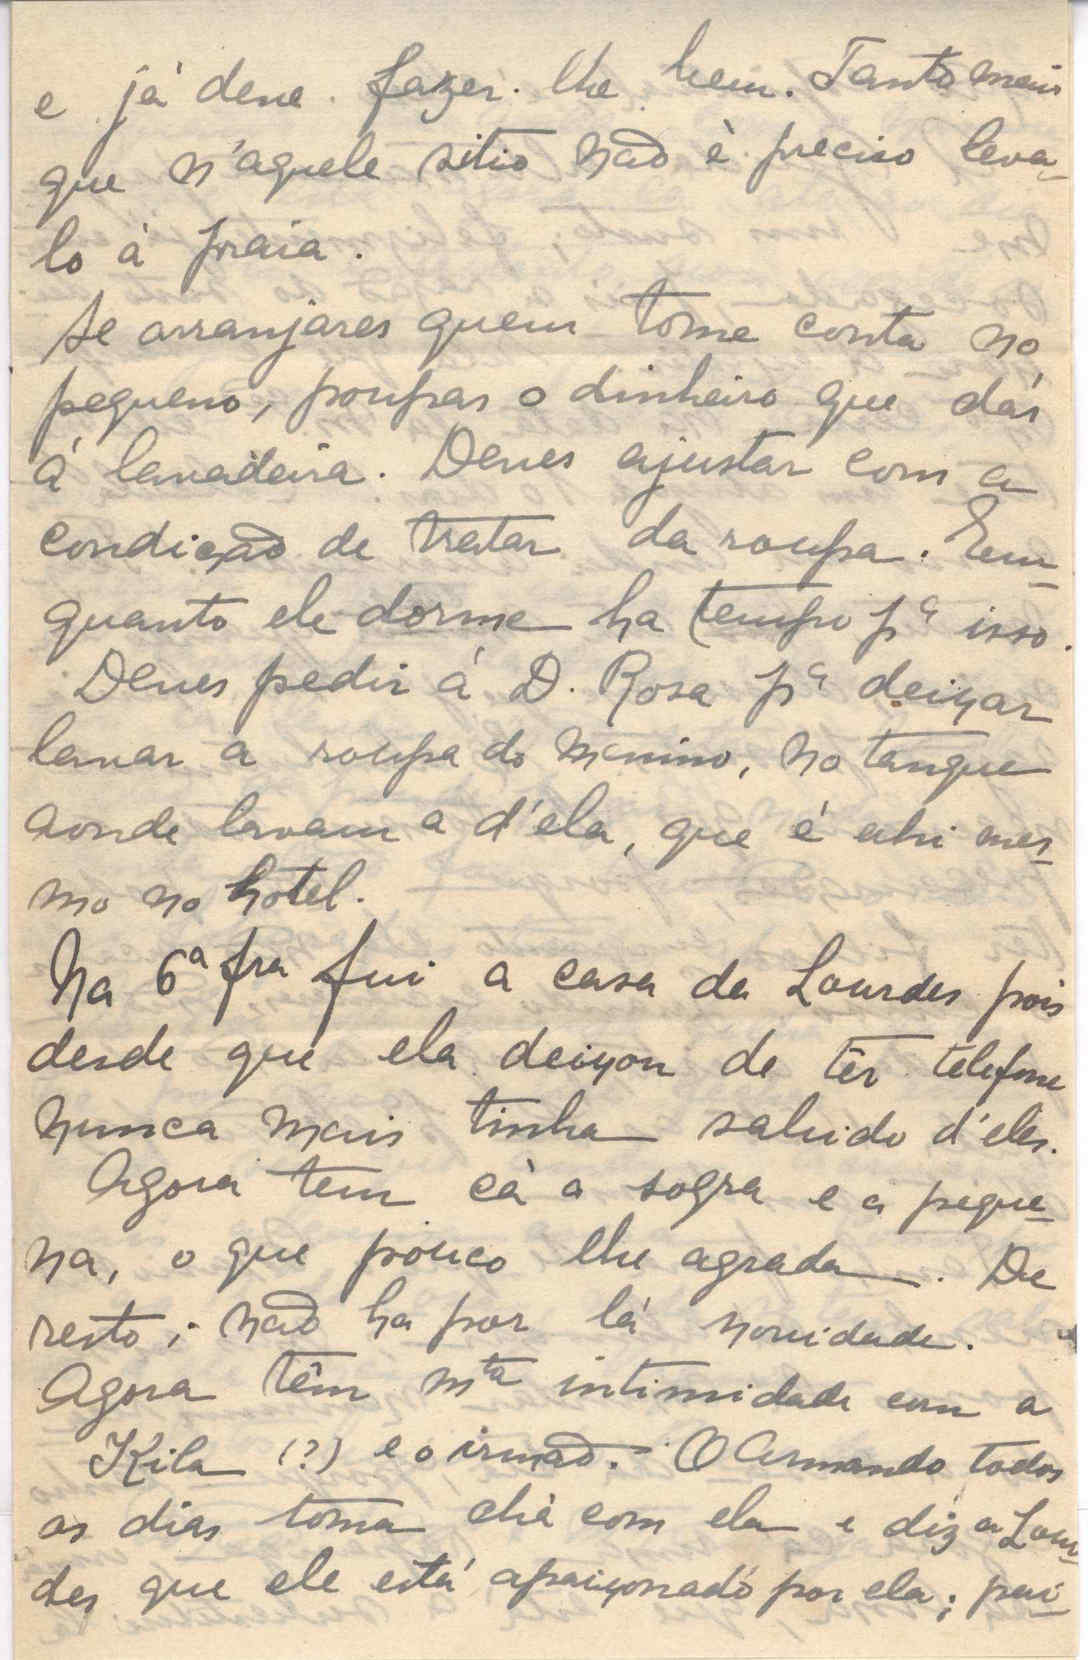 e já deve fazer-lhe bem. Tanto mais
que n'aquele sitio não è preciso leva-
lo à praia.
Se arranjares quem tome conta no
pequeno, poupas o dinheiro que dás
á lavadeira. Deves ajustar com a
condição de tratar da roupa. Em-
quanto ele dorme ha tempo pª isso.
Deves pedir á D. Rosa pª deixar
lavar a roupa do menino, no tanque
aonde lavam a d'ela, que é ahi mes-
mo no hotel.
Na 6ª fra fui a casa da Lourdes pois
desde que ela deixou de têr telefone
nunca mais tinha sabido d'eles.
Agora tem cà a sogra e a peque-
na, o que pouco lhe agrada. De
resto, não ha por lá novidade.
Agora têm mta intimidade com a
Kila (?) e o irmão. O Armando todos
os dias toma chá com ela e diz a Lour-
des que ele está apaixonado por ela; pai-